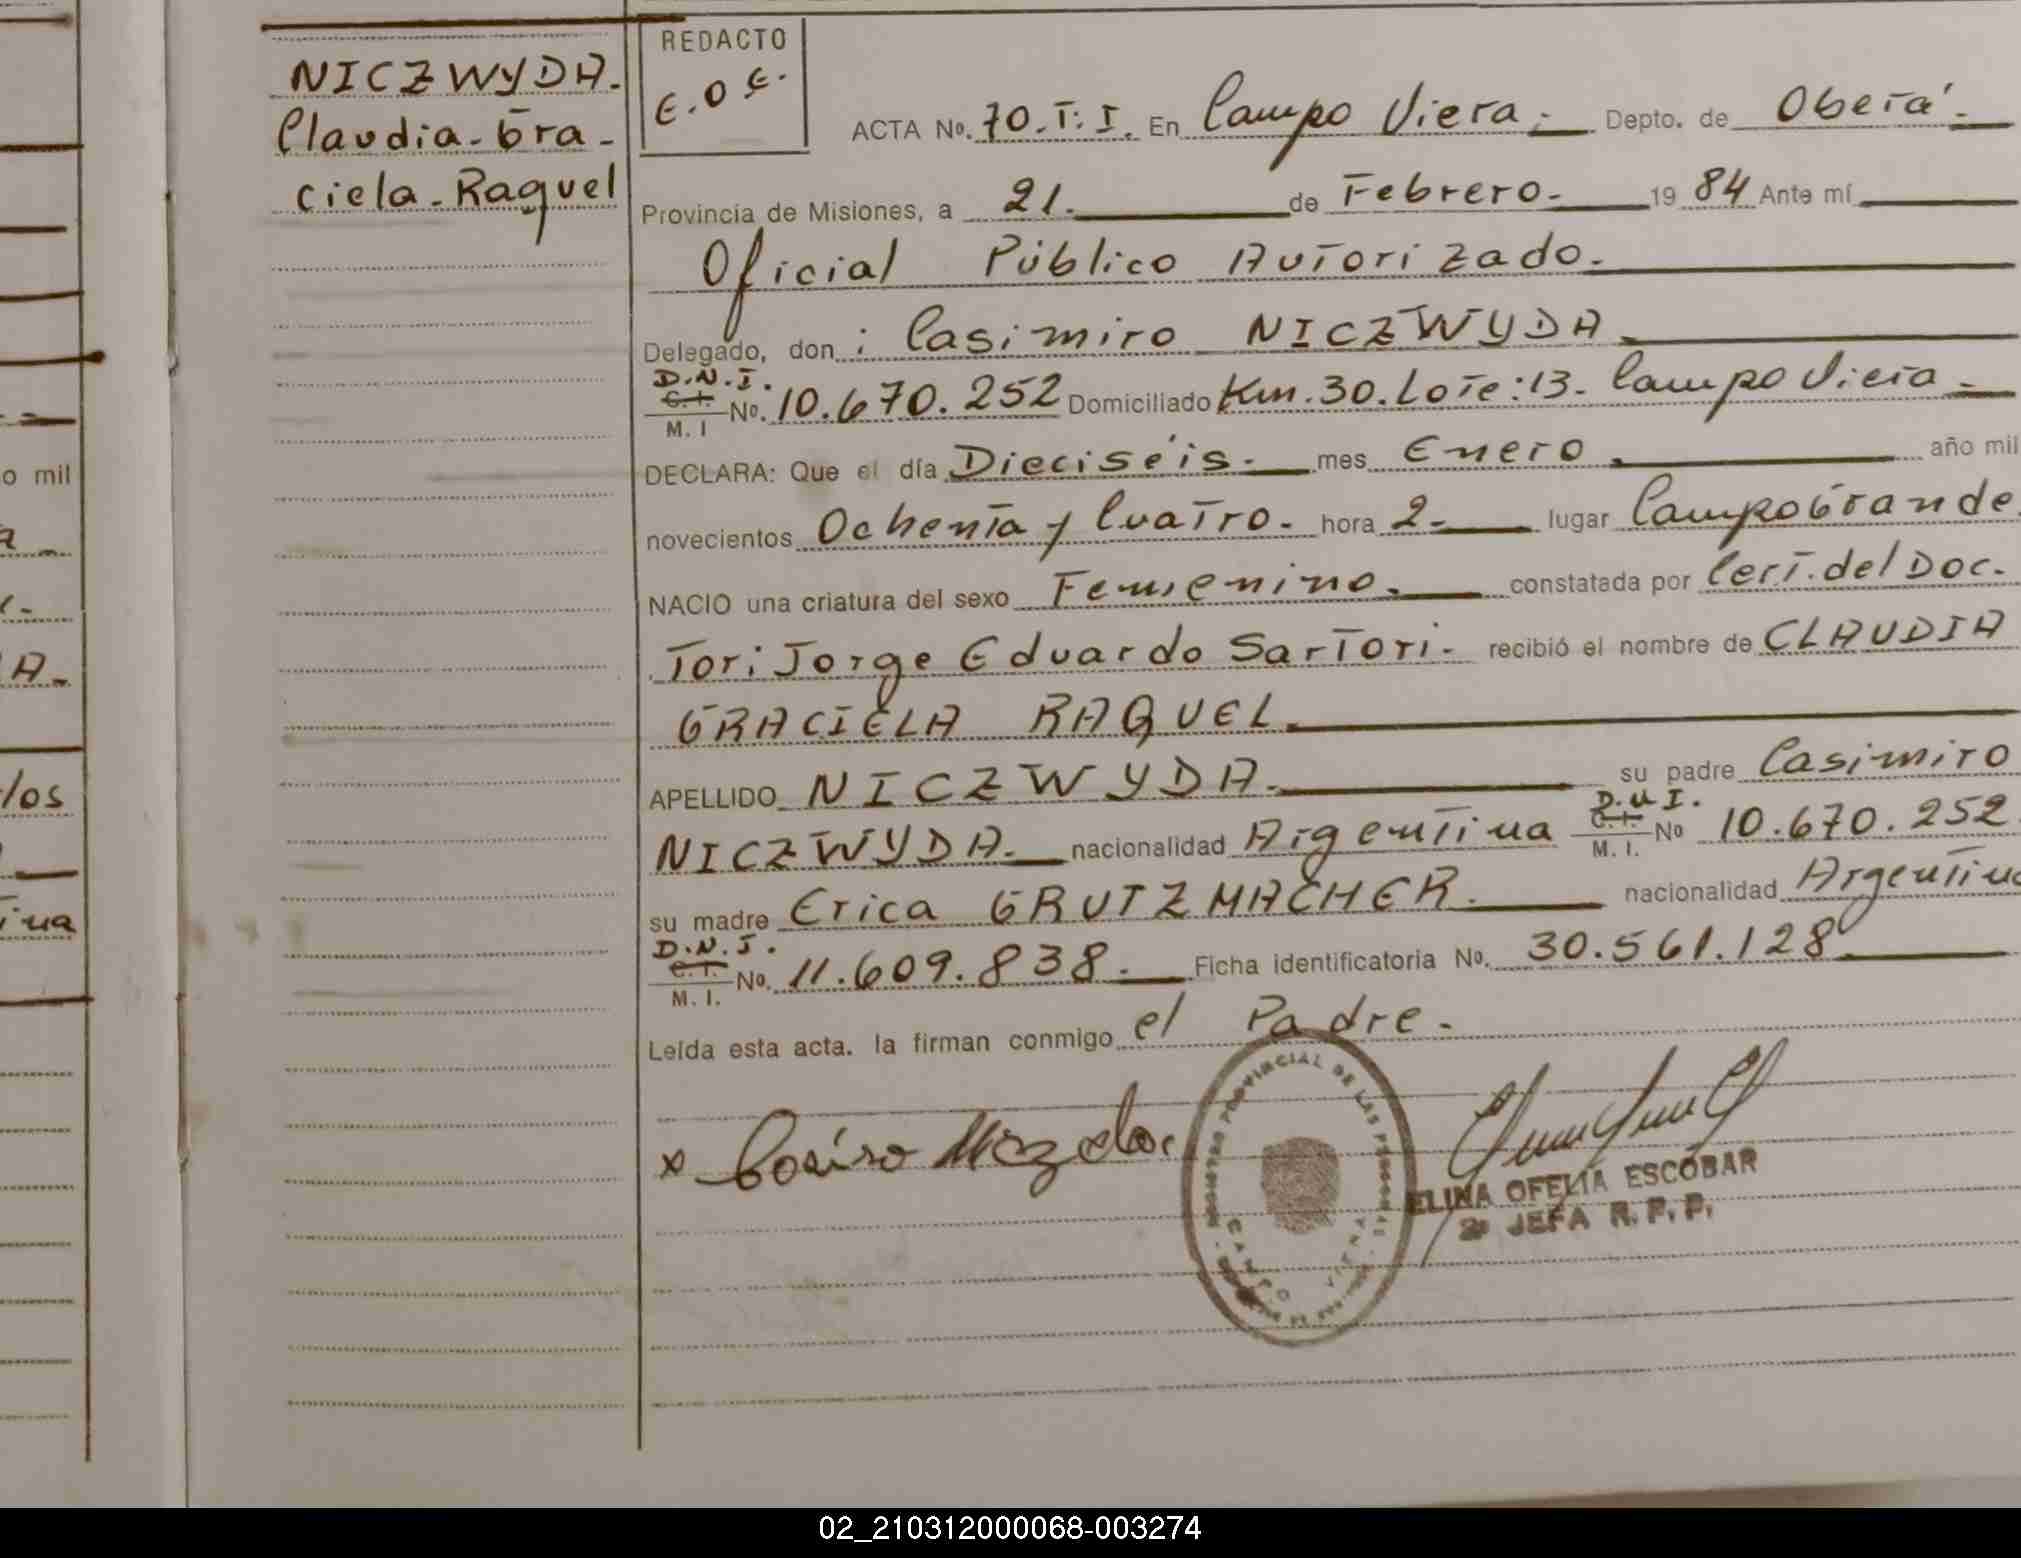 NICZWYDA.
Claudia-Gra-
ciela-Raquel
REDACTO
E.O.E.
ACTA No. 70.T.I. En Campo Viera.- Depto. de Oberá.-
Provincia de Misiones, a 21. de Febrero.- 19 84 Ante mí
Oficial Público Autorizado.-
Delegado, don : Casimiro NICZWYDA
D.N.I.
C.I. No. 10.670.252 Domiciliado Km.30.Lote:13. Campo Viera.-
M. I
DECLARA: Que el día Dieciséis.- mes Enero . año mil
novecientos Ochenta y Cuatro.- hora 2.- lugar Campo Grande.
NACIO una criatura del sexo Femenino.- constatada por Cert. del Doc.
Tor: Jorge Eduardo Sartori.- recibió el nombre de CLAUDIA
GRACIELA RAQUEL.-
APELLIDO NICZWYDA.- su padre Casimiro
D.N.I.
NICZWYDA.- nacionalidad Argentina C.I. No 10.670.252.
M. I.
su madre Erica GRUTZMACHER.- nacionalidad Argentina
D.N.I.
C.I. No. 11.609.838.- Ficha identificatoria No. 30.561.128
M. I.
Leída esta acta. la firman conmigo el Padre.-
REGISTRO PROVINCIAL DE LAS PERSONAS
CAMPO VIERA
ELINA OFELIA ESCOBAR
2ª JEFA R. P. P.
o mil
los
02_210312000068-003274